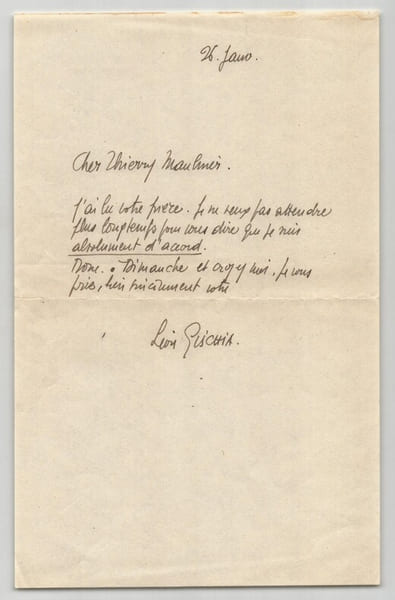 26. Janv.
Cher Thierry Maulnier.
J'ai lu votre pièce. Je ne veux pas attendre
plus longtemps pour vous dire que je suis
absolument d'accord.
Donc. à Dimanche et croyez moi, je vous
prie, bien sincèrement votre
Léon GISCHIA.